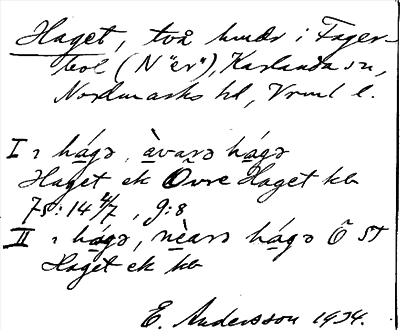 Haget, två hmdr i Fager-
bol (N "er"), Karlanda sn,
Nordmarks hd, Vrml l.
I : hágə, àvarə hágə
Haget ek Övre Haget kb
75:14 4/7, 9:8
II : hágə, nèarə hágə Ö ST
Haget ek kb
E. Andersson 1934.